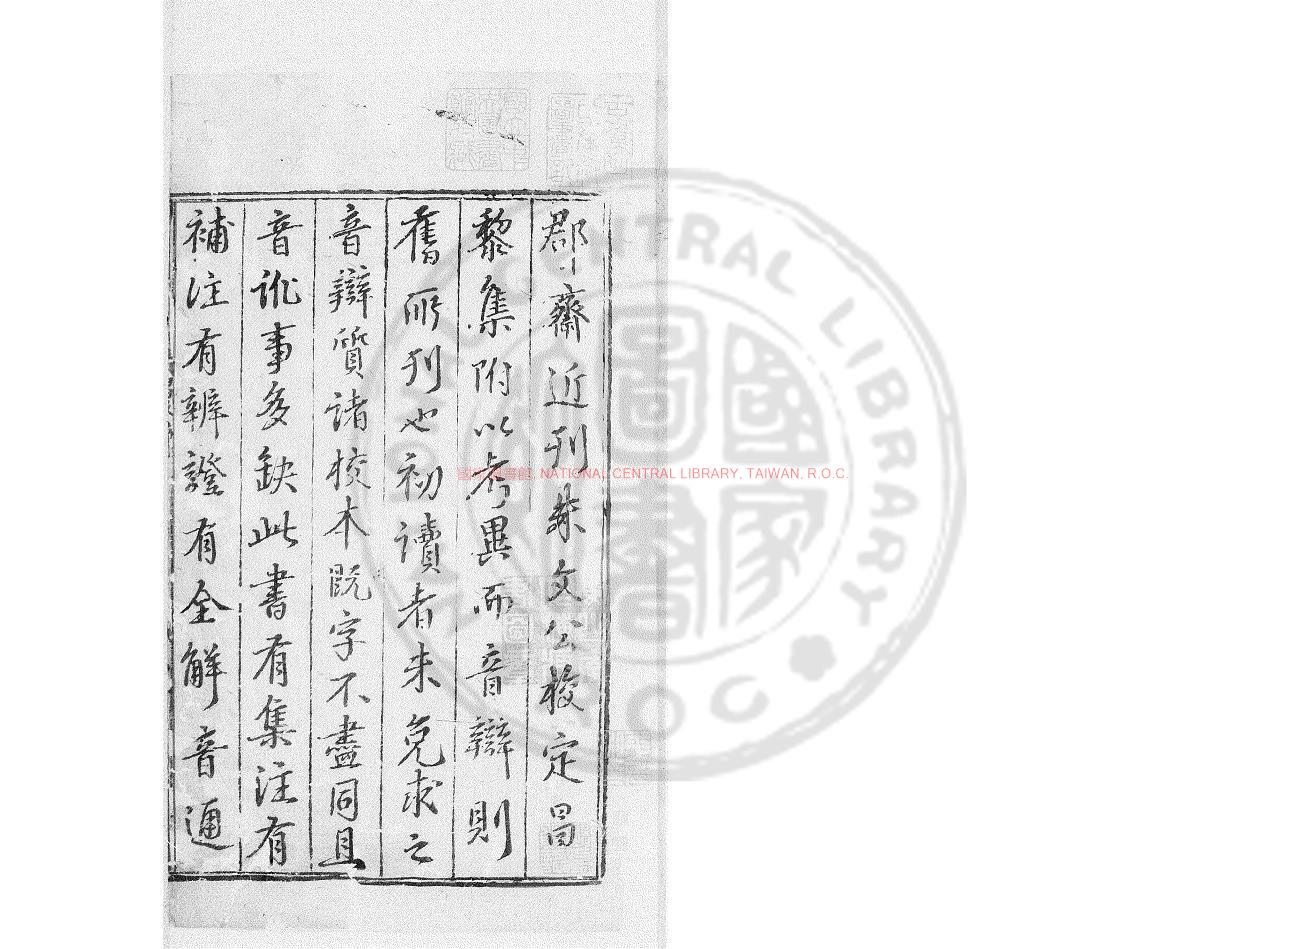 郡齋近刊朱文公校定昌
黎集附以考異而音辯則
舊所刊也初讀者未免求之
音辯質諸校本既字不盡同且
音訛事多缺此書有集注有
補注有辨證有全解音通
國家圖書館, NATIONAL CENTRAL LIBRARY, TAIWAN, R.O.C.